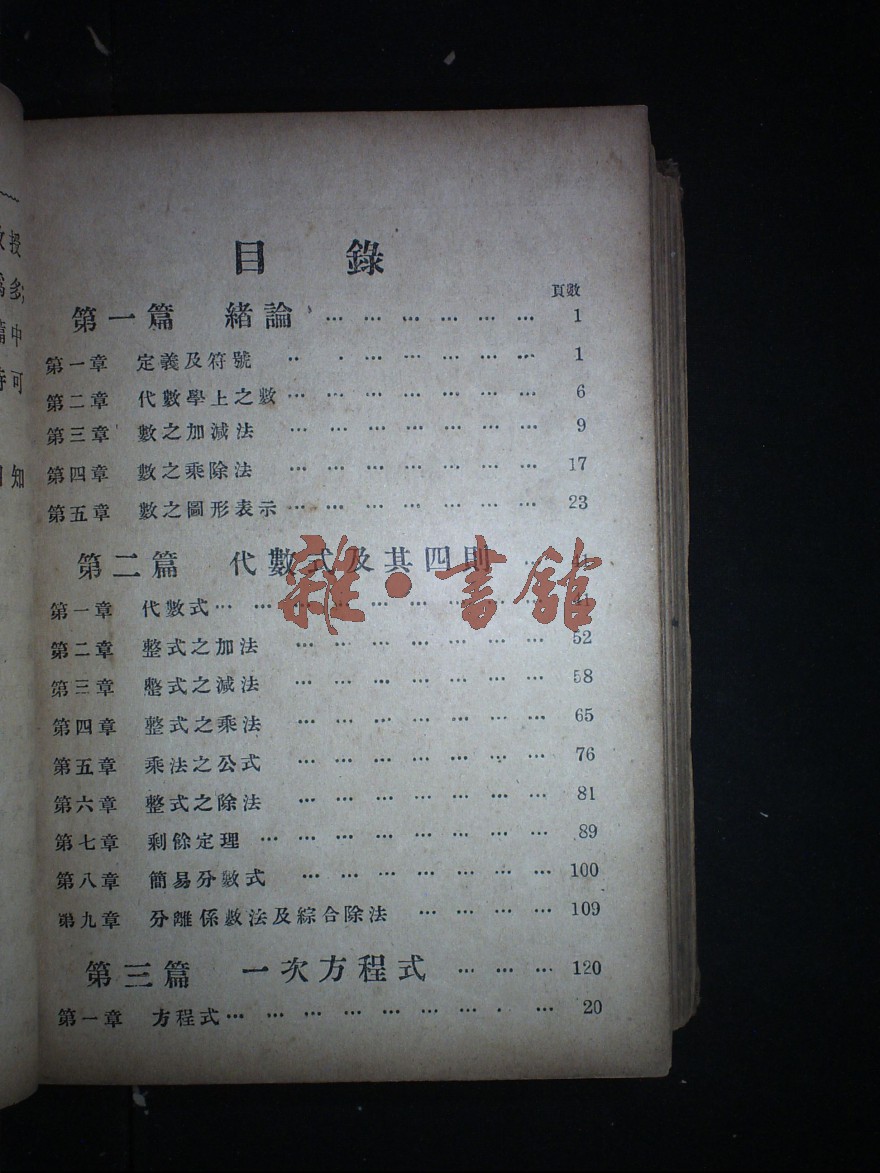 目 錄
頁數
第一篇 緒論 … … … … … … 1
第一章 定義及符號 … … … … … … … 1
第二章 代數學上之數 … … … … … … … 6
第三章 數之加減法 … … … … … … … 9
第四章 數之乘除法 … … … … … … … 17
第五章 數之圖形表示 … … … … … … … 23
第二篇 代數式及其四則 …
第一章 代數式 … … … … … … … … …
第二章 整式之加法 … … … … … … … 52
第三章 整式之減法 … … … … … … … 58
第四章 整式之乘法 … … … … … … … 65
第五章 乘法之公式 … … … … … … … 76
第六章 整式之除法 … … … … … … … 81
第七章 剩餘定理 … … … … … … … … 89
第八章 簡易分數式 … … … … … … … 100
第九章 分離係數法及綜合除法 … … … … 109
第三篇 一次方程式 … … … 120
第一章 方程式 … … … … … … … … … 20
雜·書館
授
多
中
可
知